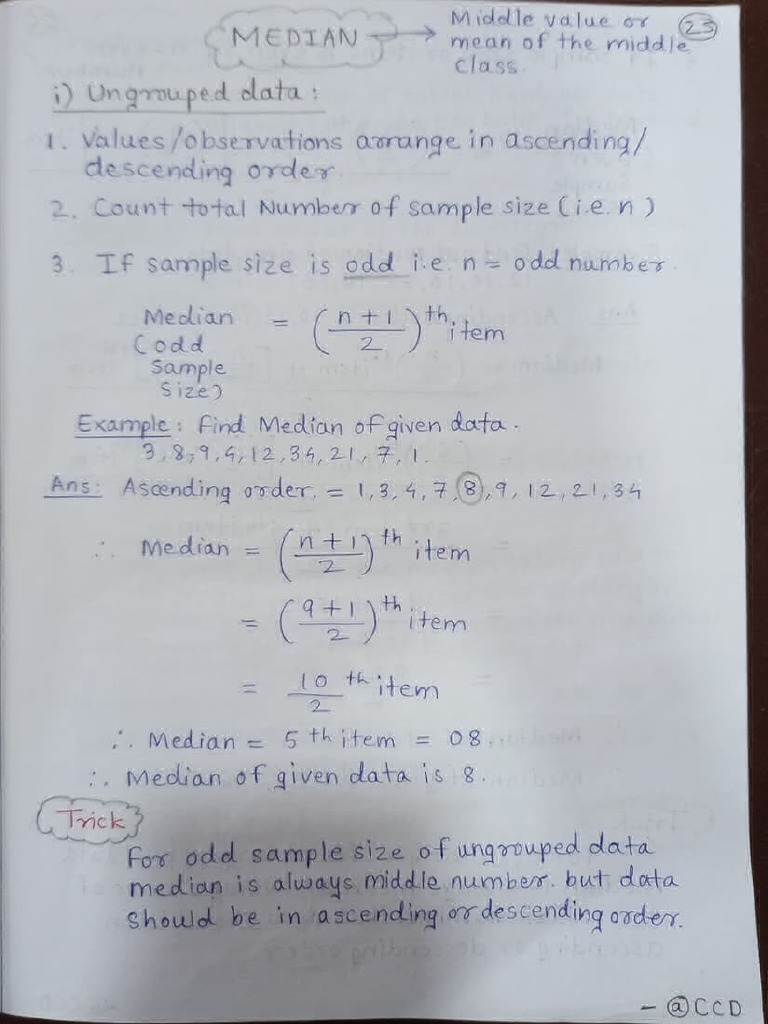 MEDIAN → Middle value or
mean of the middle
class.
23
i) Ungrouped data :
1. Values/observations arrange in ascending/
descending order.
2. Count total Number of sample size (i.e. n)
3. If sample size is odd i.e. n = odd number.
Median = (n+1/2)th item
(odd
sample
size)
Example: Find Median of given data.
3, 8, 9, 4, 12, 34, 21, 7, 1.
Ans: Ascending order = 1, 3, 4, 7, 8, 9, 12, 21, 34
∴ Median = (n+1/2)th item
= (9+1/2)th item
= 10/2 th item
∴ Median = 5th item = 08.
∴ Median of given data is 8.
Trick
For odd sample size of ungrouped data
median is always middle number. but data
should be in ascending or descending order.
- @CCD